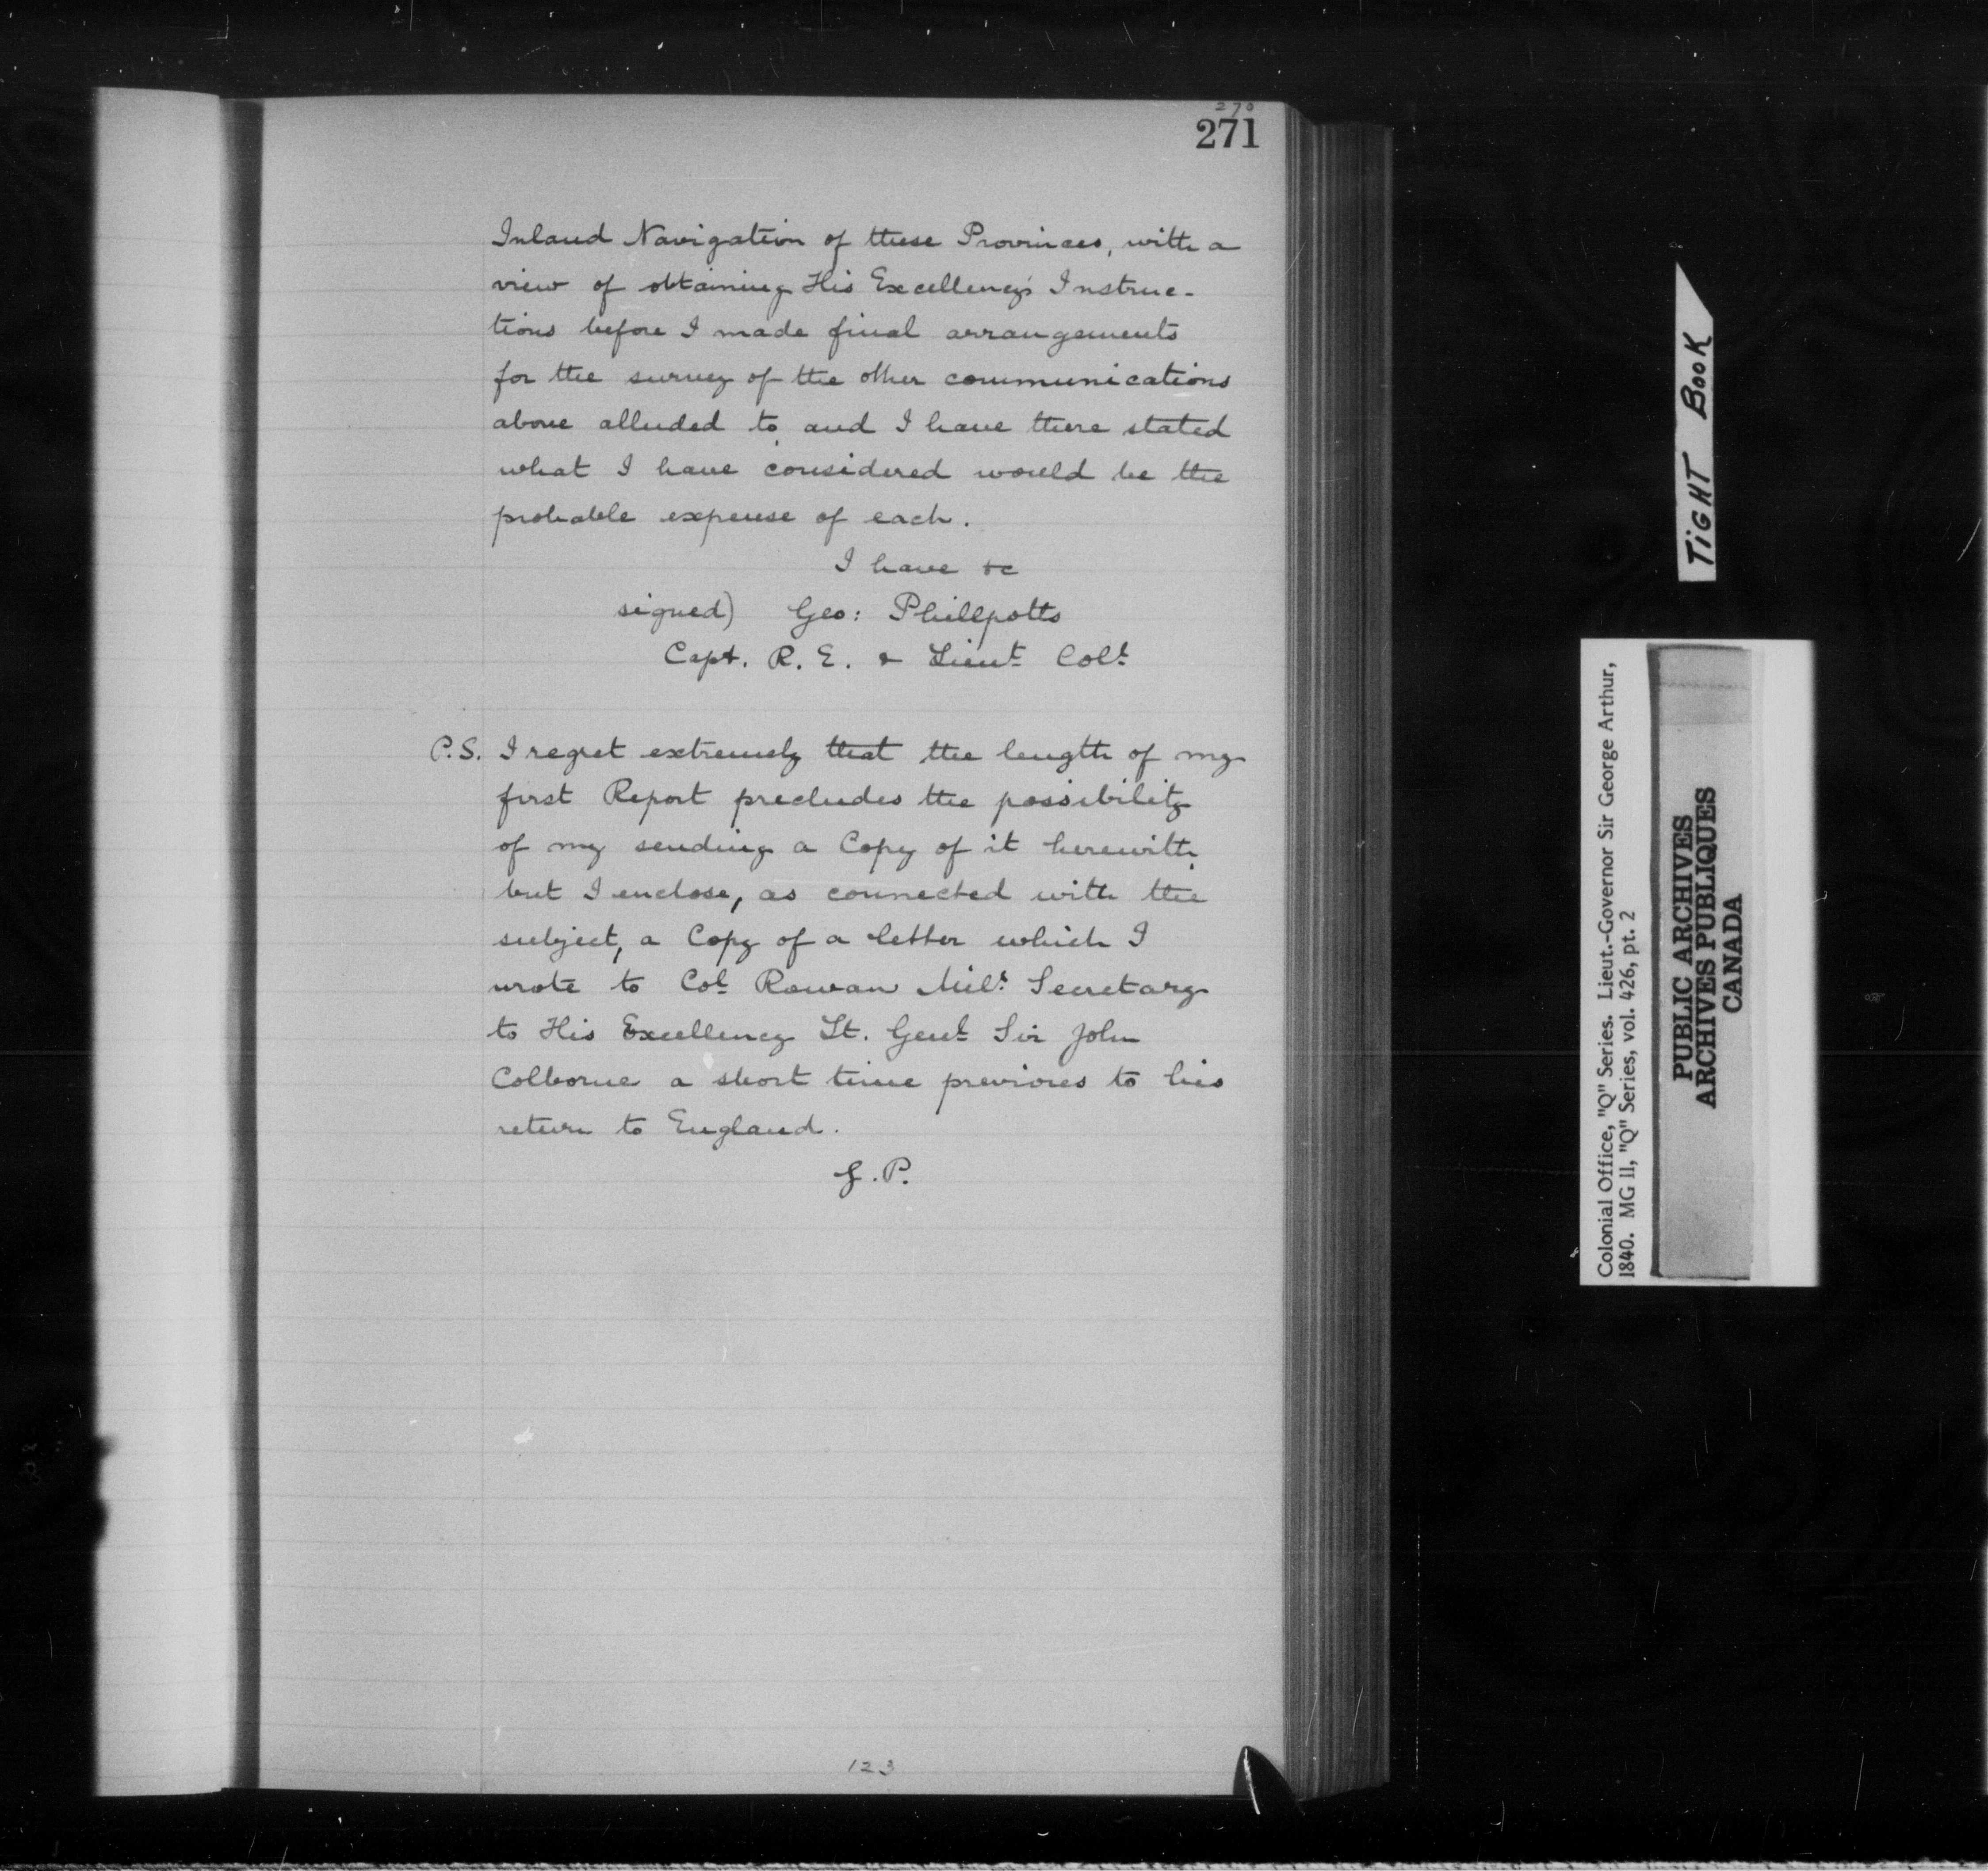 270
271
Inland Navigation of these Provinces, with a
view of obtaining His Excellency's Instruc-
tions before I made final arrangements
for the survey of the other communications
above alluded to, and I have there stated
what I have considered would be the
probable expense of each.
I have &c
signed) Geo: Phillpotts
Capt. R. E. & Lieut Colt
P.S. I regret extremely that the length of my
first Report precludes the possibility
of my sending a Copy of it herewith,
but I enclose, as connected with the
subject, a Copy of a letter which I
wrote to Col Rowan Mily Secretary
to His Excellency Lt. Genl Sir John
Colborne a short time previous to his
return to England.
G.P.
123
TIGHT BOOK
Colonial Office, "Q" Series. Lieut.-Governor Sir George Arthur,
1840. MG 11, "Q" Series, vol. 426, pt. 2
PUBLIC ARCHIVES
ARCHIVES PUBLIQUES
CANADA